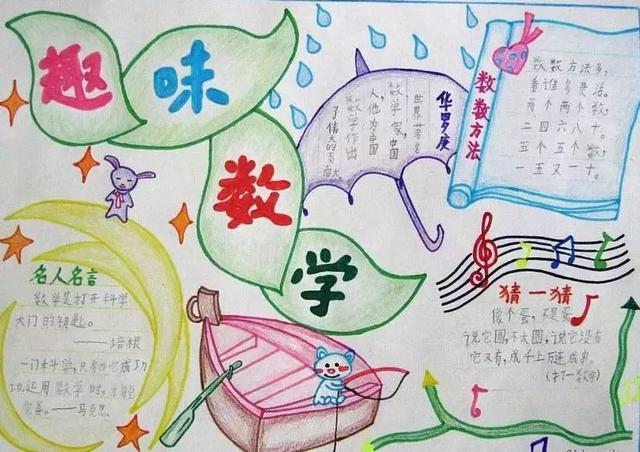 趣味数学
华罗庚
世界著名
数学家,中国
人,他为中国
数学作出
了伟大的贡
献
数数方法
数数方法多,
看谁多灵活。
两个两个数,
二四六八十。
五个五个数,
一五又一十。
名人名言
数学是打开科学
大门的钥匙。
——培根
一门科学,只有当它成功
地运用数学时,才能
完善。——马克思
猜一猜
像个蛋,不是蛋
说它圆,不太圆,说它没有
它又有,成千上万连成串。
(打一数字)